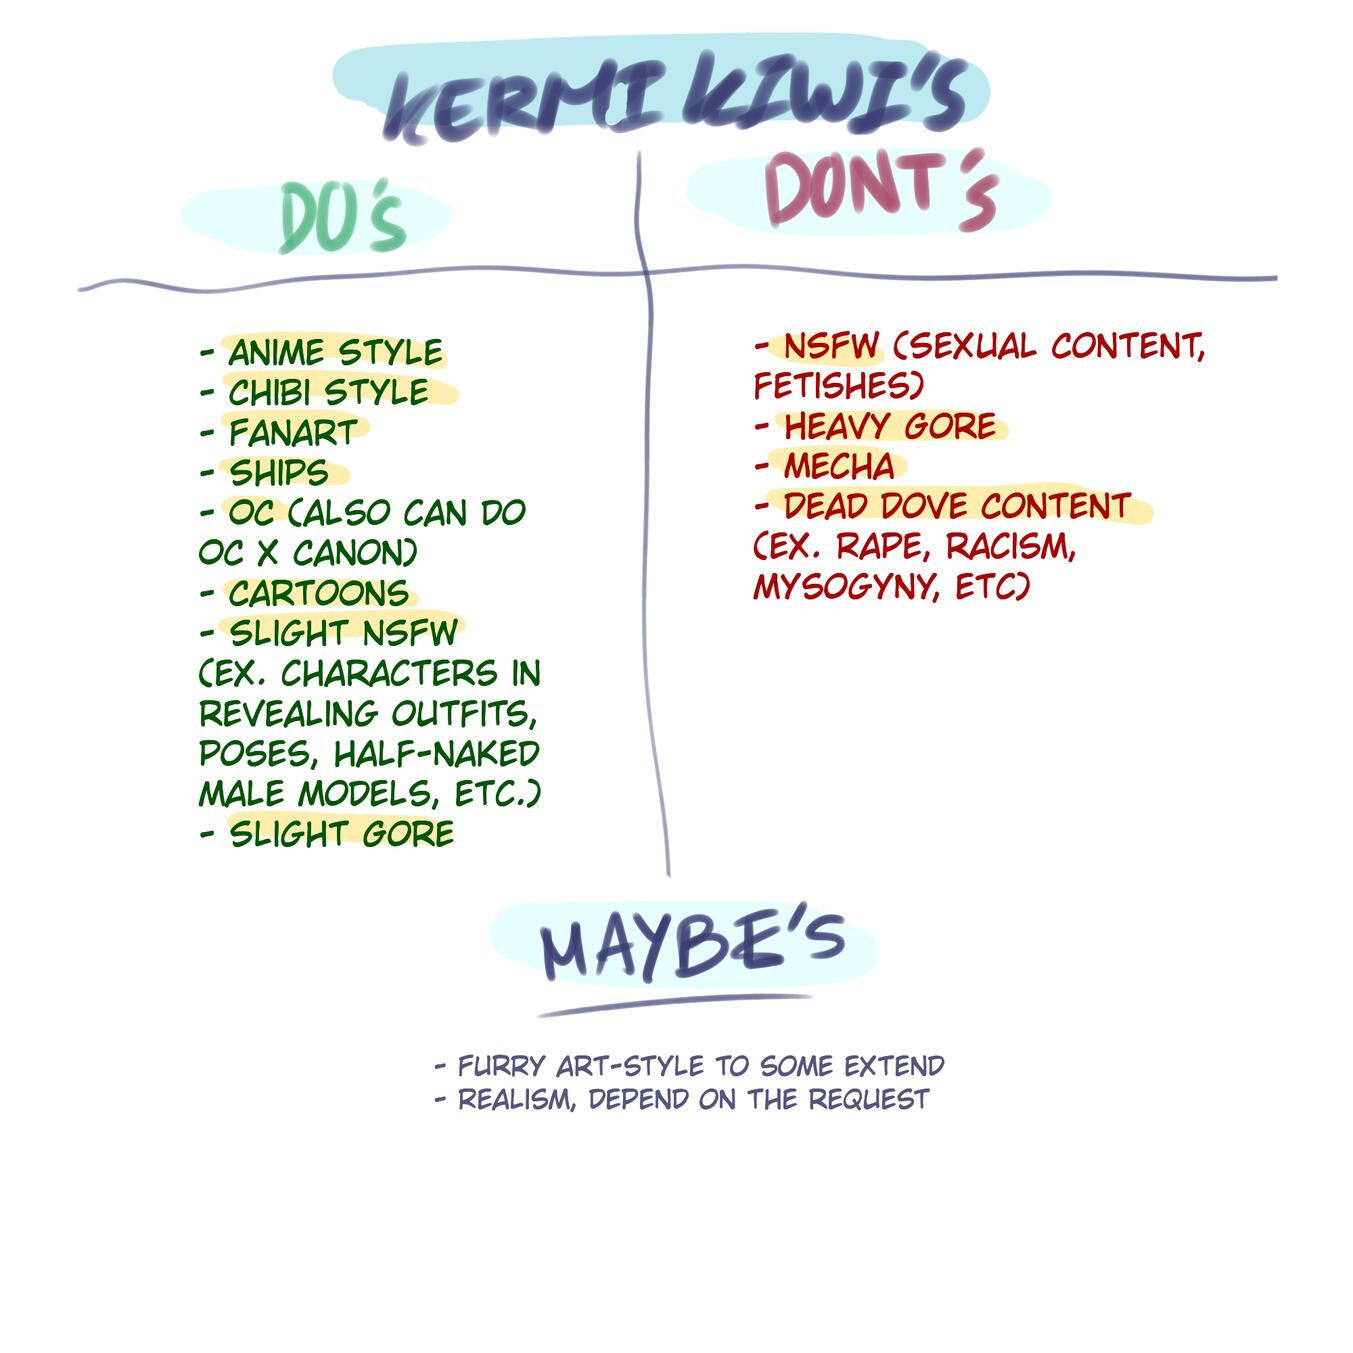 KERMI KIWI'S
DO'S
DONT'S
- ANIME STYLE
- CHIBI STYLE
- FANART
- SHIPS
- OC (ALSO CAN DO
OC X CANON)
- CARTOONS
- SLIGHT NSFW
(EX. CHARACTERS IN
REVEALING OUTFITS,
POSES, HALF-NAKED
MALE MODELS, ETC.)
- SLIGHT GORE
- NSFW (SEXUAL CONTENT,
FETISHES)
- HEAVY GORE
- MECHA
- DEAD DOVE CONTENT
(EX. RAPE, RACISM,
MYSOGYNY, ETC)
MAYBE'S
- FURRY ART-STYLE TO SOME EXTEND
- REALISM, DEPEND ON THE REQUEST